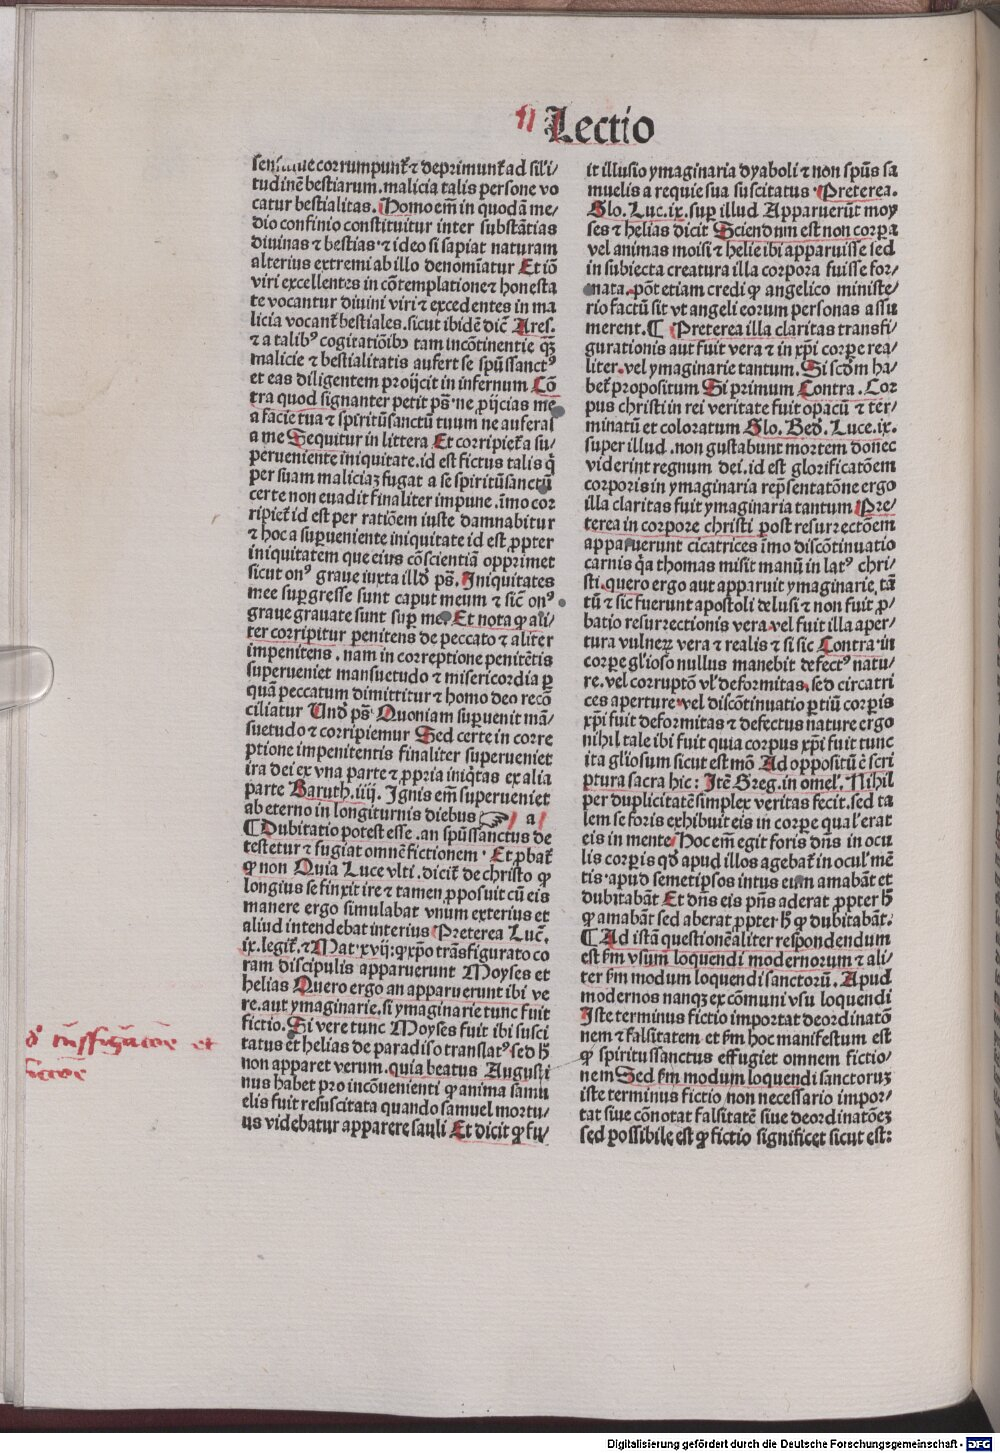 Lectio
corrumpunt᷑ ⁊ deprimunt᷑ ad sil'i
tudinē bestiarum. malicia talis persone vo
catur bestialitas. Homo em̄ in quodā me/
dio confinio constituitur inter substātias
diuinas ⁊ bestias· ⁊ ideo si sapiat naturam
alterius extremi ab illo denomīatur Et iō
viri excellentes in cōtemplatione ⁊ honesta
te vocantur diuini viri ⁊ excedentes in ma
licia vocant᷑ bestiales. sicut ibidē dic̄ Ares.
⁊ a talibꝰ cogitatiōibꝫ tam incōtinentie qꝫ̄
malicie ⁊ bestialitatis aufert se spūssanctꝰ
et eas diligentem proijcit in infernum Cō
tra quod signanter petit ps̄· ne ꝓijcias me
a facie tua ⁊ spiritūsanctū tuum ne auferas
a me Sequitur in littera Et corripiet᷑ a su/
perueniente iniquitate. id est fictus talis q̄
per suam maliciaꝫ fugat a se spiritūsanctū
certe non euadit finaliter impune. īmo cor
ripiet᷑ id est per ratiōem iuste damnabitur
⁊ hoc a suꝑueniente iniquitate id est ꝓpter
iniquitatem que eius cōscientiā opprimet
sicut onꝰ graue iuxta illd̓ ps̄. Iniquitates
mee suꝑgresse sunt caput meum ⁊ sic̄ onꝰ
graue grauate sunt suꝑ me. Et nota ꝙ ali/
ter corripitur penitens de peccato ⁊ aliter
impenitens. nam in correptione penitētis
superueniet mansuetudo ⁊ misericordia ꝑ
quā peccatum dimittitur ⁊ homo deo recō
ciliatur Vnd̓ ps̄· Quoniam suꝑuenit mā/
suetudo ⁊ corripiemur Sed certe in corre
ptione impenitentis finaliter superueniet
ira dei ex vna parte ⁊ ꝓpria iniq̇tas ex alia
parte Baruth. iiij. Ignis em̄ superueniet
ab eterno in longiturnis diebus ☞ a
¶ Dubitatio potest esse. an spūssanctus de
testetur ⁊ fugiat omnē fictionem· Et ꝓbat᷑
ꝙ non Quia Luce vlti. dicit᷑ de christo ꝙ
longius se finxit ire ⁊ tamen ꝓposuit cū eis
manere ergo simulabat vnum exterius et
aliud intendebat interius Preterea Luc̄.
ix. legit᷑. ⁊ Mat· xvij: ꝙ xp̄o trāsfigurato co
ram discipulis apparuerunt Moyses et
helias Quero ergo an apparuerunt ibi ve
re. aut ymaginarie. si ymaginarie tunc fuit
fictio. Si vere tunc Moyses fuit ibi susci
tatus et helias de paradiso translatꝰ· sed h̄
non apparet verum. quia beatus Augusti
nus habet pro incōuenienti ꝙ anima samu
elis fuit resuscitata quando samuel mortu/
us videbatur apparere sauli Et dicit ꝙ fu/
it illusio ymaginaria dyaboli ⁊ non spūs sa
muelis a requie sua suscitatus· Preterea.
Glo. Luc. ix. suꝑ illud Apparuerūt moy
ses ⁊ helias dicit Sciendum est non corꝑa
vel animas moisi ⁊ helie ibi apparuisse sed
in subiecta creatura illa corpora fuisse for/
mata. pōt etiam credi ꝙ angelico ministe/
rio factū sit vt angeli eorum personas assu
merent. ¶ Preterea illa claritas transfi/
gurationis aut fuit vera ⁊ in xp̄i corꝑe rea/
liter. vel ymaginarie tantum. Si scd̓m ha/
bet᷑ propositum Si primum Contra. Cor
pus christi in rei veritate fuit opacū ⁊ ter/
minatū et coloratum Glo. Bed̓. Luce. ix.
super illud. non gustabunt mortem donec
viderint regnum dei. id est glorificatōem
corporis in ymaginaria rep̄sentatōne ergo
illa claritas fuit ymaginaria tantum Pre/
terea in corpore christi post resurrectōem
apparuerunt cicatrices īmo discōtinuatio
carnis q̄a thomas misit manū in latꝰ chri/
sti. quero ergo aut apparuit ymaginarie tā
tū ⁊ sic fuerunt apostoli delusi ⁊ non fuit ꝓ/
batio resurrectionis vera. vel fuit illa aper/
tura vulneꝝ vera ⁊ realis ⁊ si sic Contra· in
corꝑe gl'ioso nullus manebit defectꝰ natu/
re. vel corruptō vl' deformitas. sed circatri
ces aperture· vel discōtinuatio ꝑtiū corꝑis
xp̄i fuit deformitas ⁊ defectus nature ergo
nihil tale ibi fuit quia corpus xp̄i fuit tunc
ita gl'iosum sicut est mō Ad oppositū ē scri
ptura sacra hic: Itē Greg. in omel'. Nihil
per duplicitatē simplex veritas fecit. sed ta
lem se foris exhibuit eis in corꝑe qual' erat
eis in mente Hoc em̄ egit foris dn̄s in ocu
lis corꝑis qd̓ apud illos agebat᷑ in ocul' mē
tis· apud semetipsos intus eum amabāt et
dubitabāt Et dn̄s eis pn̄s aderat ꝓpter h̄
ꝙ amabāt sed aberat ꝓpter h̄ ꝙ dubitabāt.
¶ Ad istā questionē aliter respondendum
est ẜm vsum loquendi modernorum ⁊ ali/
ter ẜm modum loquendi sanctorū. Apud
modernos nanqꝫ ex cōmuni vsu loquendi
Iste terminus fictio importat deordinatō
nem ⁊ falsitatem et ẜm hoc manifestum est
ꝙ spiritussanctus effugiet omnem fictio/
nem Sed ẜm modum loquendi sanctoruꝫ
iste terminus fictio non necessario impor/
tat siue cōnotat falsitatē siue deordinatōeꝫ
sed possibile est ꝙ fictio significet sicut est:
Digitalisierung gefördert durch die Deutsche Forschungsgemeinschaft - DFG